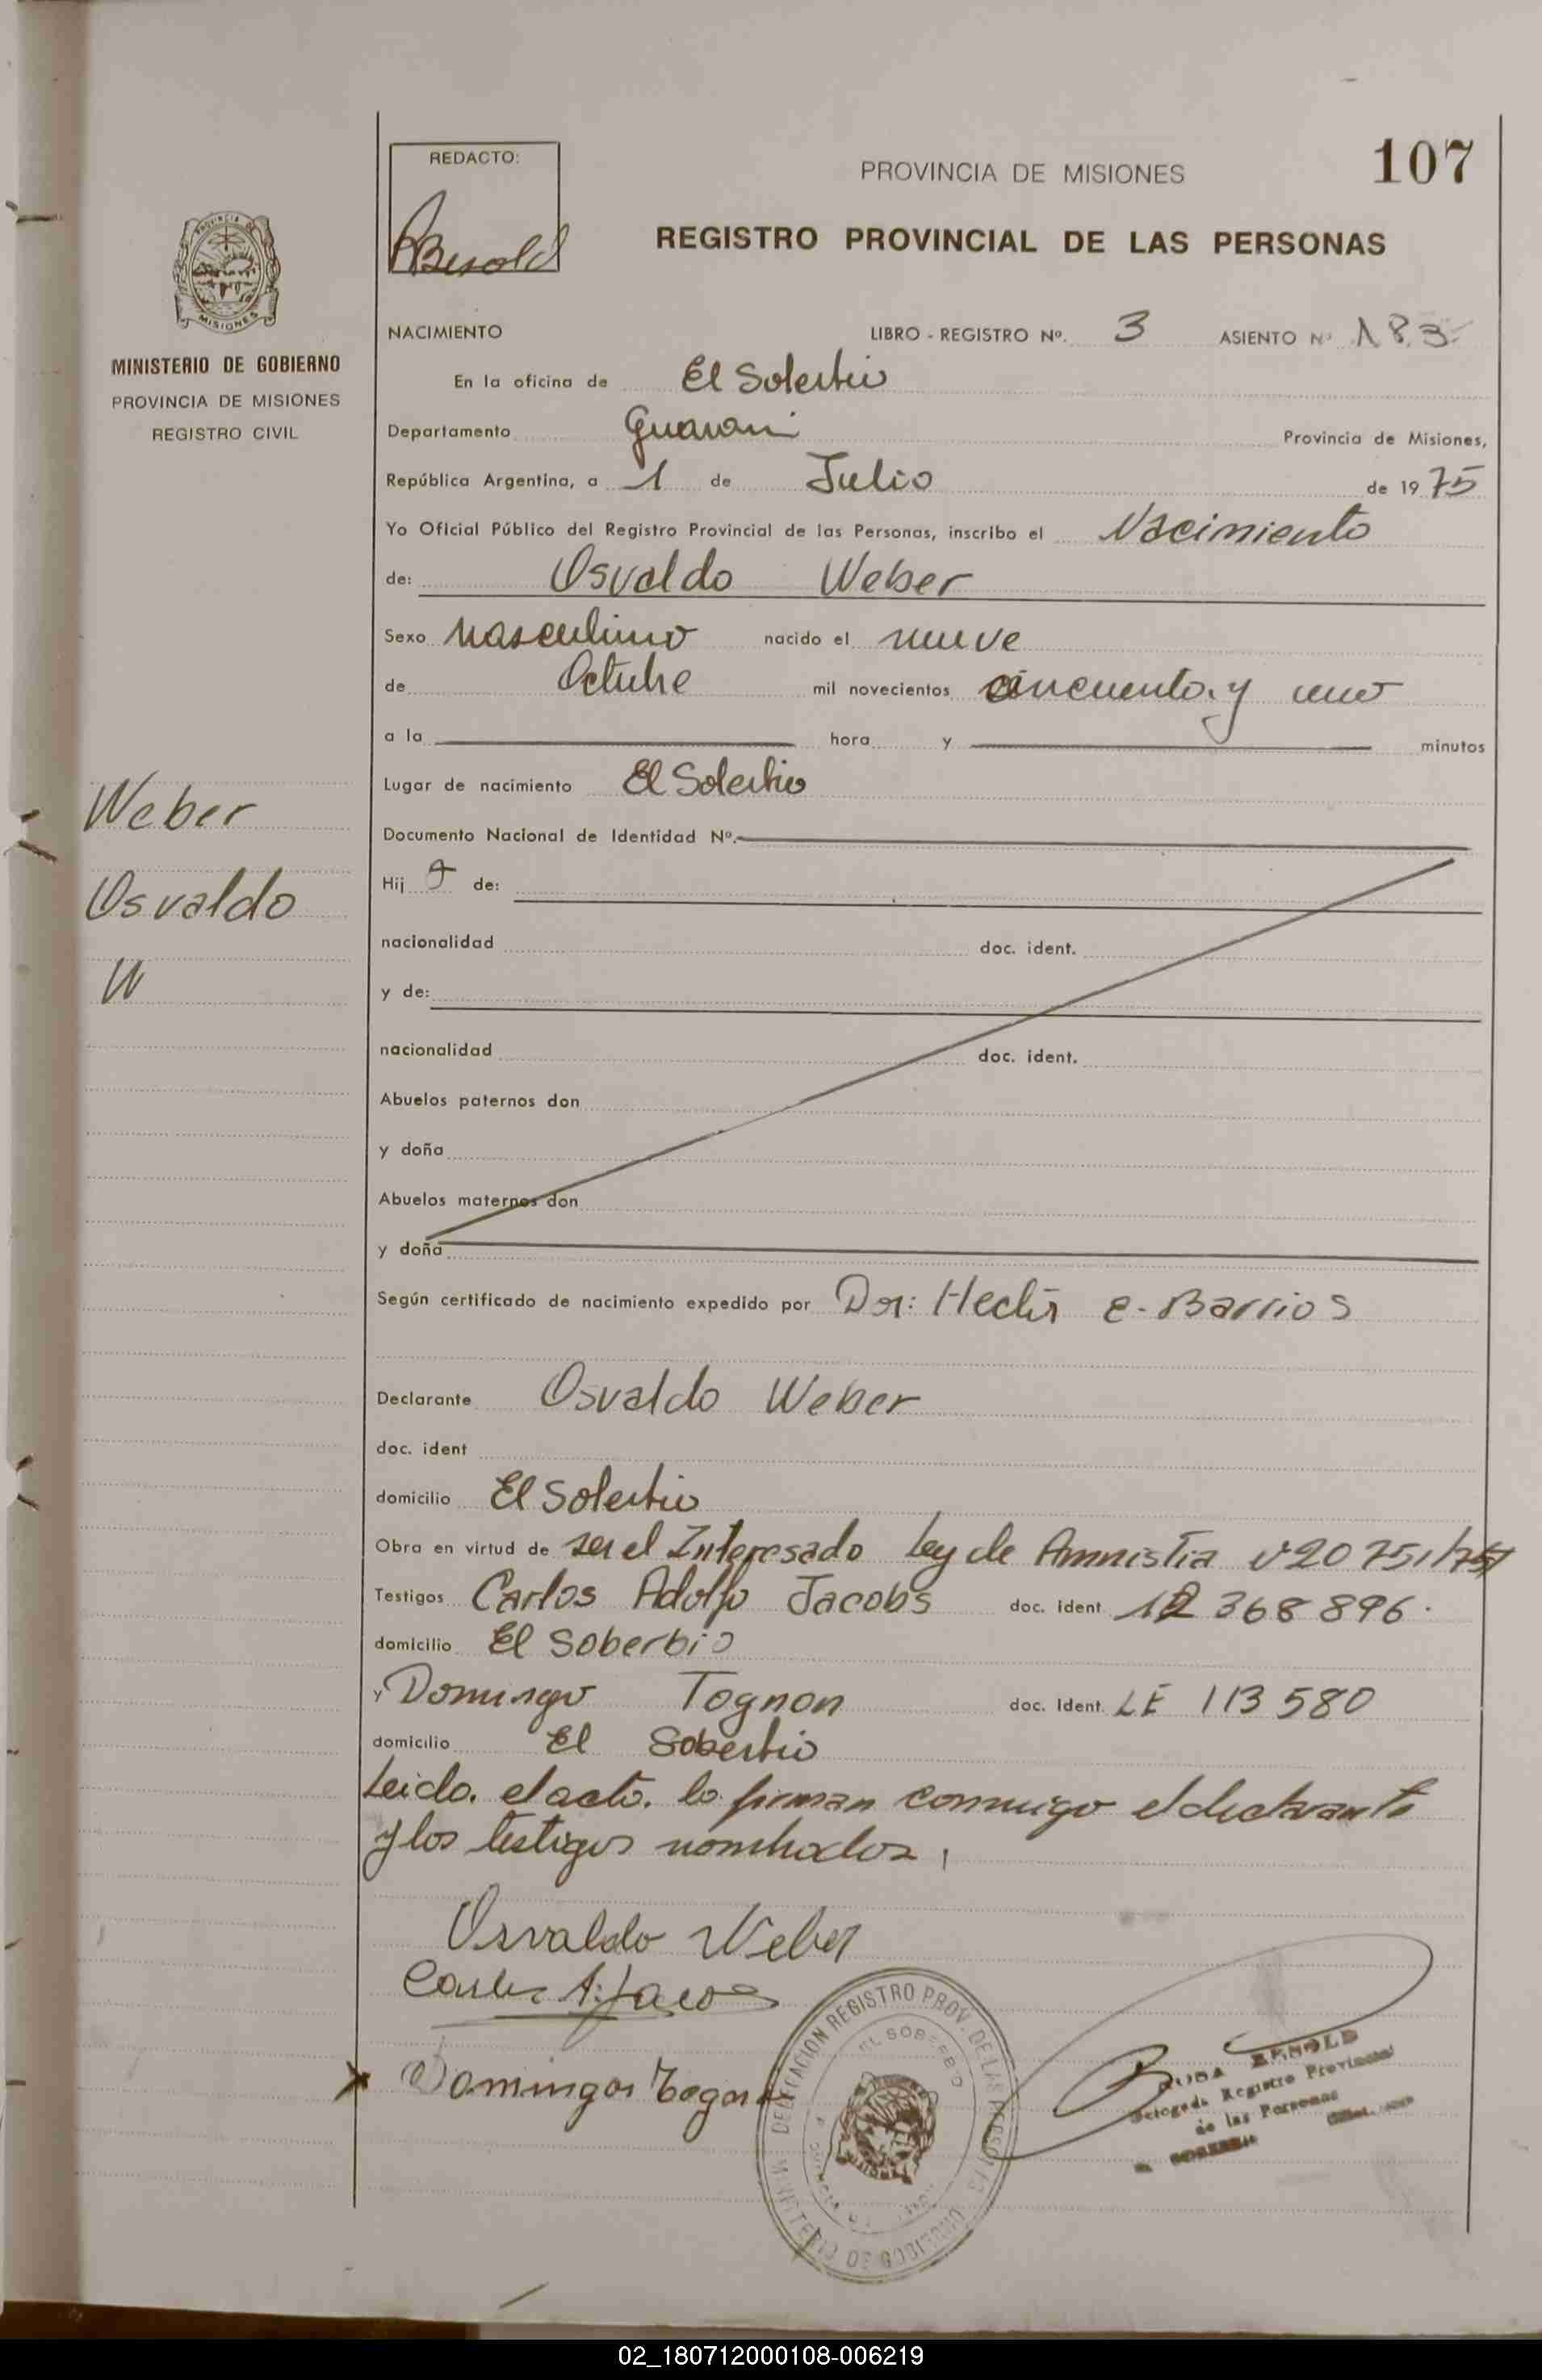 107
REDACTO:
PROVINCIA DE MISIONES
REGISTRO PROVINCIAL DE LAS PERSONAS
MISIONES
MINISTERIO DE GOBIERNO
PROVINCIA DE MISIONES
REGISTRO CIVIL
NACIMIENTO LIBRO - REGISTRO Nº. 3 ASIENTO Nº 183
En la oficina de El Soberbio
Departamento Guarani Provincia de Misiones,
República Argentina, a 1 de Julio de 1975
Yo Oficial Público del Registro Provincial de las Personas, inscribo el Nacimiento
de: Osvaldo Weber
Sexo Masculino nacido el nueve
de Octubre mil novecientos cincuenta y uno
a la hora y minutos
Lugar de nacimiento El Soberbio
Documento Nacional de Identidad Nº.
Hij o de:
nacionalidad doc. ident.
y de:
nacionalidad doc. ident.
Abuelos paternos don
y doña
Abuelos maternos don
y doña
Weber
Osvaldo
Según certificado de nacimiento expedido por Dr: Hector E. Barrios
Declarante Osvaldo Weber
doc. ident
domicilio El Soberbio
Obra en virtud de ser el Interesado Ley de Amnistia nº 20751/75
Testigos Carlos Adolfo Jacobs doc. ident 12 368 896.
domicilio El Soberbio
y Domingo Tognon doc. ident. LE 113580
domicilio El Soberbio
Leida el acta. la firman conmigo el declarante
y los testigos nombrados,
Osvaldo Weber
Carlos A. Jacobs
Domingos
DELEGACION REGISTRO PROV. DE LAS PERSONAS
EL SOBERBIO
MINISTERIO DE GOBIERNO
ROSA BENOLD
Delegada Registro Provincial
de las Personas
02_180712000108-006219